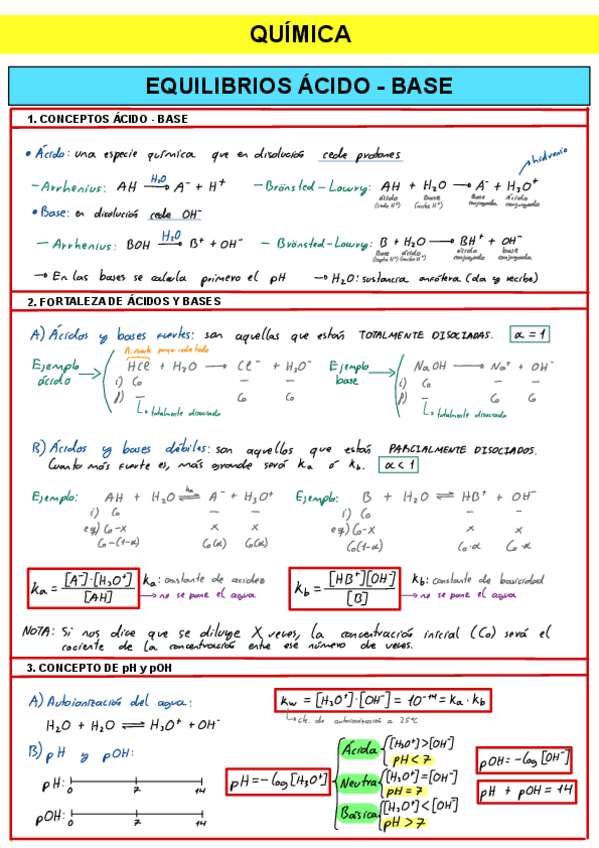 QUÍMICA
EQUILIBRIOS ÁCIDO - BASE
1. CONCEPTOS ÁCIDO - BASE
• Ácido: una especie química que en disolución cede protones
hidronio
– Arrhenius: AH —H₂O→ A⁻ + H⁺ – Brönsted-Lowry: AH + H₂O → A⁻ + H₃O⁺
ácido (cede H⁺) Base (capta H⁺) Base conjugada ácido conjugado
• Base: en disolución cede OH⁻
– Arrhenius: BOH —H₂O→ B⁺ + OH⁻ – Brönsted-Lowry: B + H₂O → BH⁺ + OH⁻
Base (capta H⁺) ácido (cede H⁺) ácido conjugado base conjugada
→ En las bases se calcula primero el pH → H₂O: sustancia anfótera (da y recibe)
2. FORTALEZA DE ÁCIDOS Y BASES
A) Ácidos y bases fuertes: son aquellas que están TOTALMENTE DISOCIADAS. α = 1
A. fuerte porque cede todo
Ejemplo ácido HCl + H₂O → Cl⁻ + H₃O⁻ Ejemplo base NaOH → Na⁺ + OH⁻
i) C₀ – – i) C₀ – –
f) – C₀ C₀ f) – C₀ C₀
totalmente disociado totalmente disociado
B) Ácidos y bases débiles: son aquellos que estás PARCIALMENTE DISOCIADOS.
Cuanto más fuerte es, más grande será ka ó kb. α < 1
Ejemplo: AH + H₂O ⇌ka A⁻ + H₃O⁺ Ejemplo: B + H₂O ⇌ HB⁺ + OH⁻
i) C₀ – – i) C₀ – –
eq) C₀-x x x eq) C₀-x x x
C₀-(1-α) C₀(α) C₀(α) C₀(1-α) C₀·α C₀α
ka = [A⁻]·[H₃O⁺] / [AH] ka: constante de acidez kb = [HB⁺][OH⁻] / [B] kb: constante de basicidad
→ no se pone el agua → no se pone el agua
NOTA: Si nos dice que se diluye X veces, la concentración inicial (C₀) será el
cociente de la concentración entre ese número de veces.
3. CONCEPTO DE pH y pOH
A) Autoionización del agua: kw = [H₃O⁺]·[OH⁻] = 10⁻¹⁴ = ka·kb
cte. de autoionización a 25°C
H₂O + H₂O ⇌ H₃O⁺ + OH⁻
B) pH y pOH:
pH: 0 7 14
pOH: 0 7 14
pH = -log[H₃O⁺]
Ácida [H₃O⁺] > [OH⁻]
pH < 7
Neutra [H₃O⁺] = [OH⁻]
pH = 7
Básica [H₃O⁺] < [OH⁻]
pH > 7
pOH = -log[OH⁻]
pH + pOH = 14